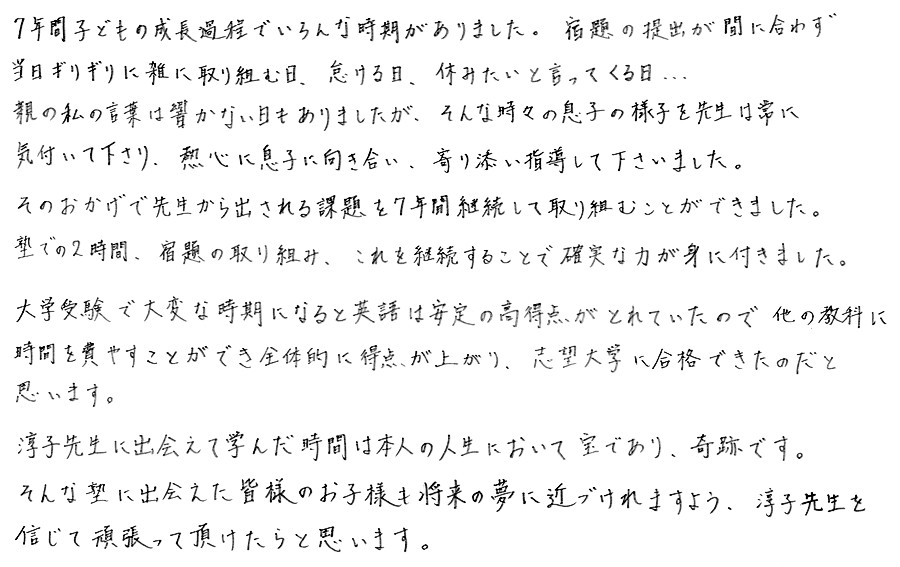 7年間子どもの成長過程でいろんな時期がありました。宿題の提出が間に合わず
当日ギリギリに雑に取り組む日、怠ける日、休みたいと言ってくる日…
親の私の言葉は響かない日もありましたが、そんな時々の息子の様子を先生は常に
気付いて下さり、熱心に息子に向き合い、寄り添い指導して下さいました。
そのおかげで先生から出される課題を7年間継続して取り組むことができました。
塾での2時間、宿題の取り組み、これを継続することで確実な力が身に付きました。
大学受験で大変な時期になると英語は安定の高得点がとれていたので他の教科に
時間を費やすことができ全体的に得点が上がり、志望大学に合格できたのだと
思います。
淳子先生に出会えて学んだ時間は本人の人生において宝であり、奇跡です。
そんな塾に出会えた皆様のお子様も将来の夢に近づけれますよう、淳子先生を
信じて頑張って頂けたらと思います。